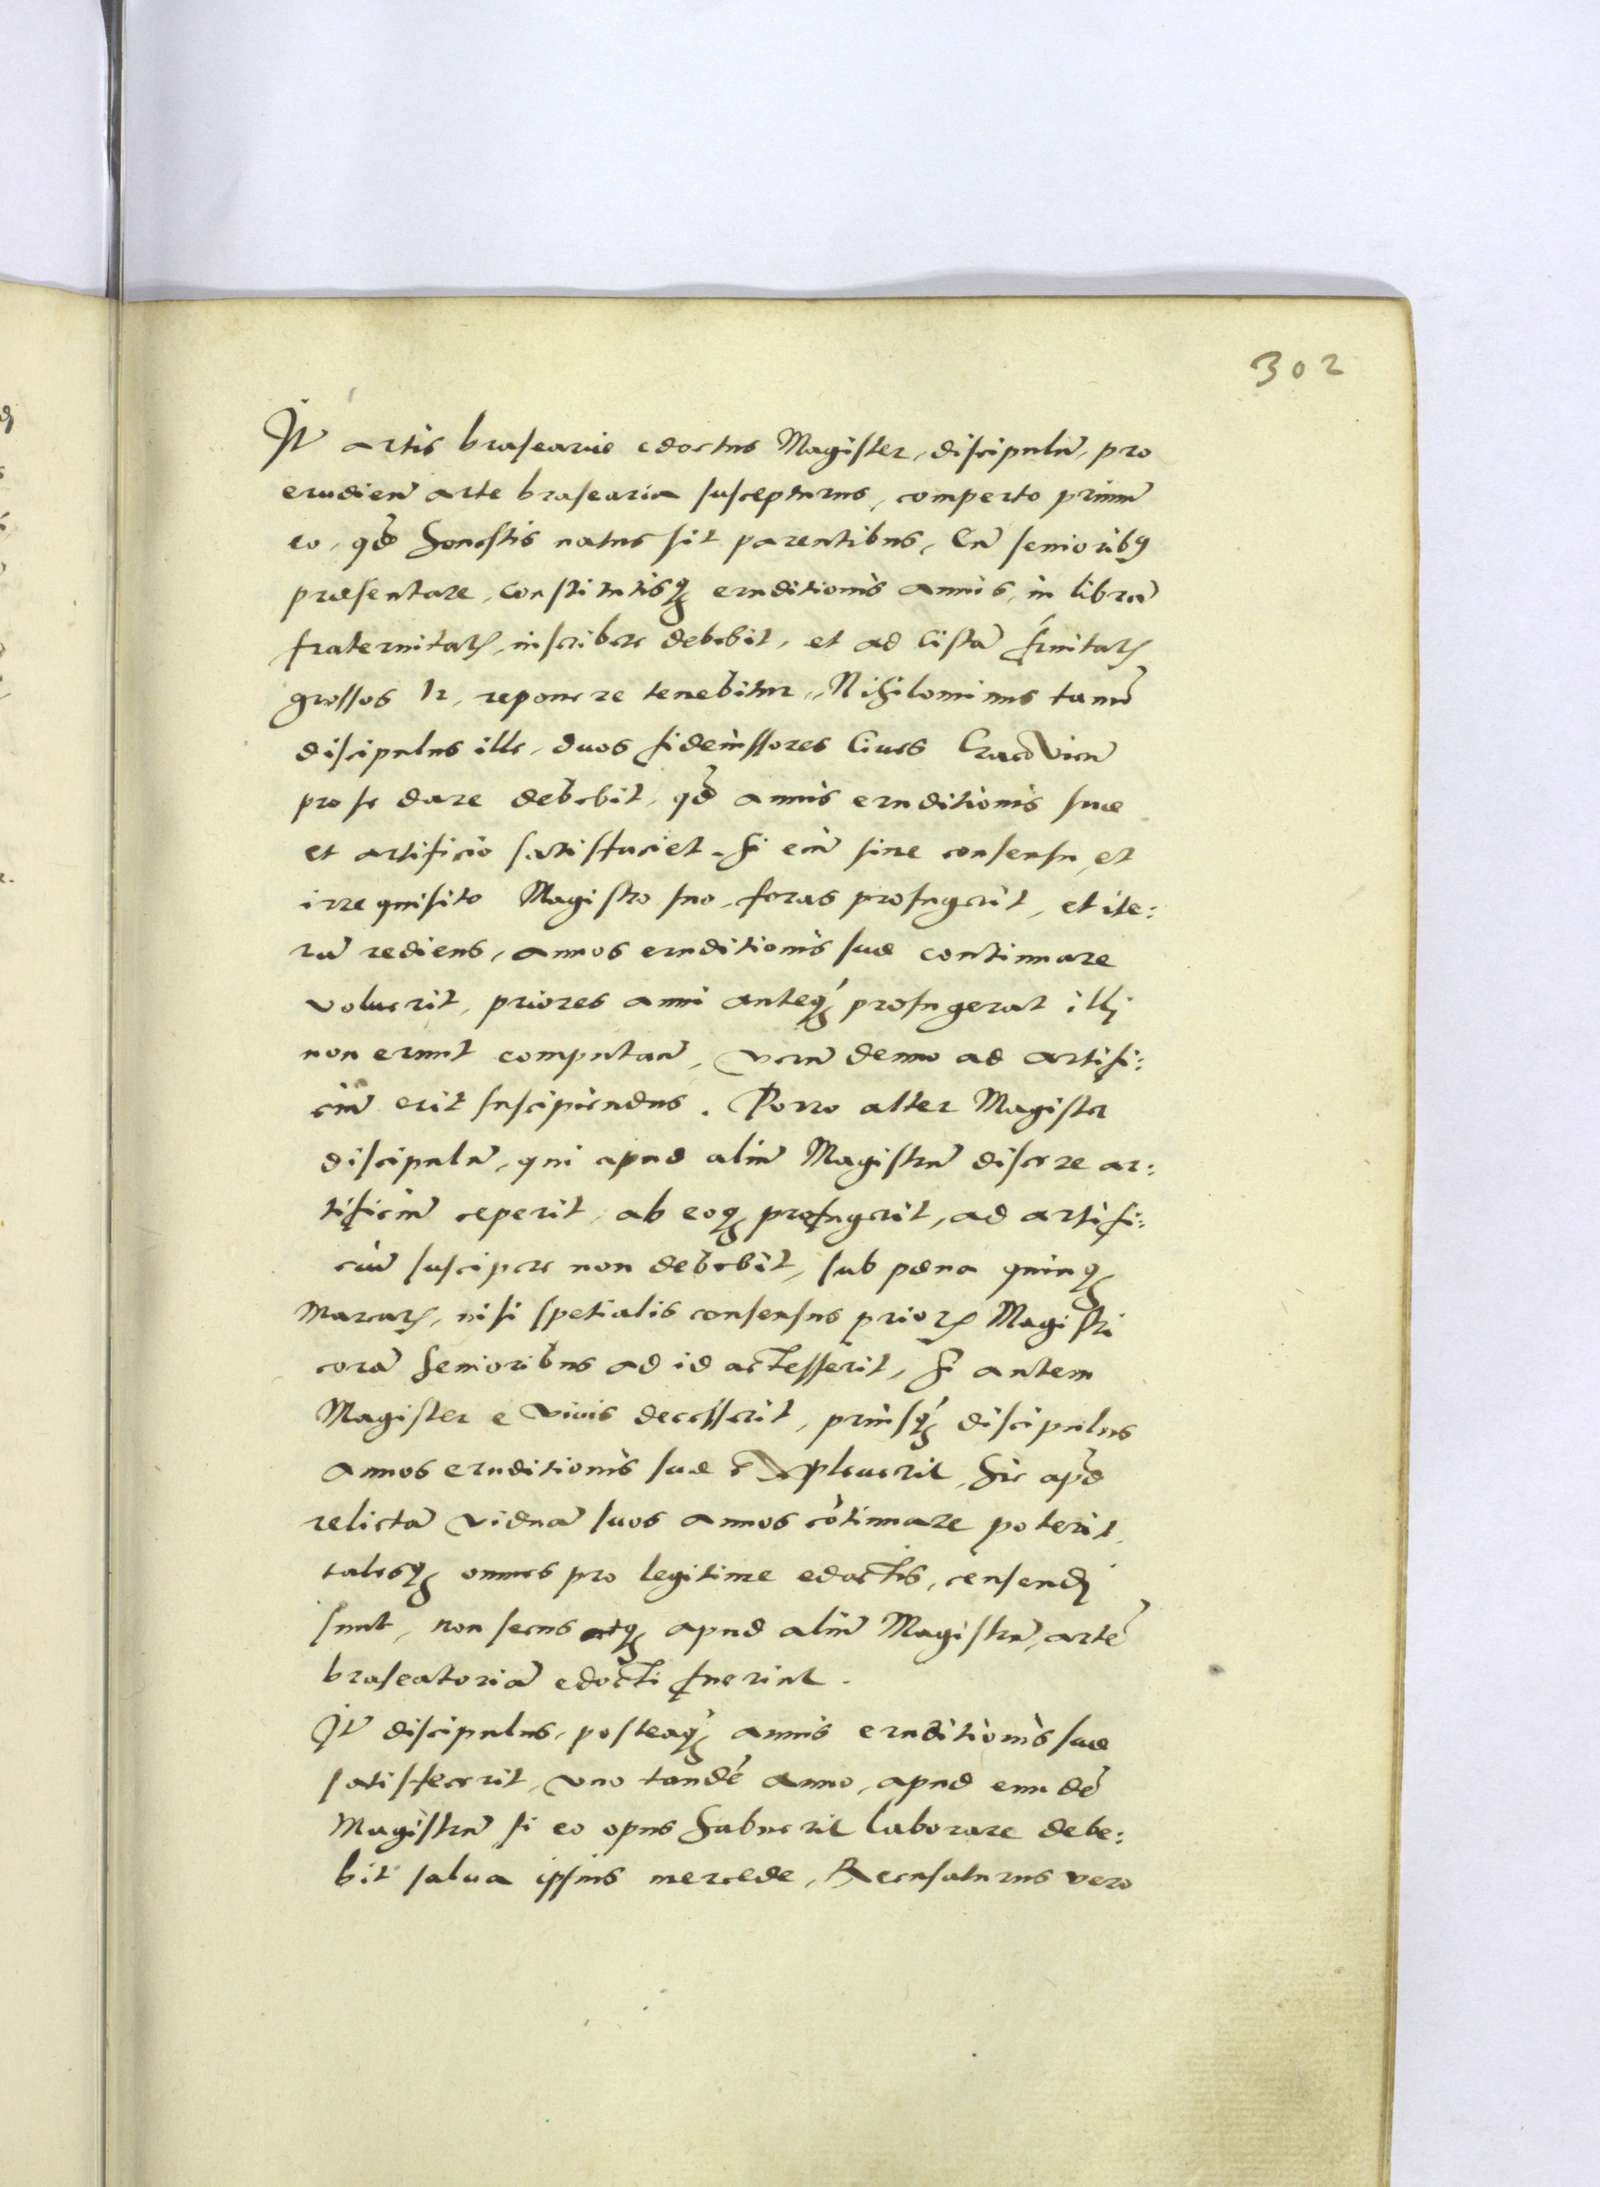 302
Itē artis braseariæ edoctus Magister, discipulū, pro
erudien̄ arte brasearia suscepturus, comperto primū
eo, qđ honestis natus sit parentibus, Eū seniorib9
præsentare, constitutisq₃ eruditionis annis, in librū
fraternitatꝭ, inscribere debebit, et ad Cistā fr̄nitatꝭ
grossos 12, reponere tenebitur, Nihilominus tamē
discipulus ille, duos fideiussores Ciues Cracovien̄
pro se dare debebit, qđ annis eruditionis suæ
et artificio satisfaciet. Si em̄ sine consensu, et
irrequisito Magistro suo, foras profugerit, et ite:
rū rediens, annos eruditionis suæ continuare
voluerit, priores anni anteq̄₃ profugerat illi
non erunt computan̄, verū denuo ad artifi:
ciū erit suscipiendus. Porro alter Magister
discipulū, qui apud aliū Magistrū discere ar:
tificiū ceperit, ab eoq₃ profugerit, ad artifi:
ciū suscipere non debebit, sub pæna quinq₃
marcarꝭ, nisi spetialis consensus priorꝭ Magistri
corā Senioribus ad id actesserit, Si autem
Magister e vivis decesserit, priusq̄₃ discipulus
annos eruditionis suæ expleuerit, hic apđ
relictā viduā suos annos cōtinuare poterit,
talesq₃ omnes pro legitime edoctis, censendi
sunt, non secus atq₃ apud aliū Magistrū, artē
braseatoriā edocti fuerint.
Itē discipulus, posteaq̄₃ annis eruditionis suæ
satisfecerit, vno tandē anno, apud eundē
Magistrū si eo opus habuerit laborare debe:
bit salua ipsius mercede, Recusaturus vero